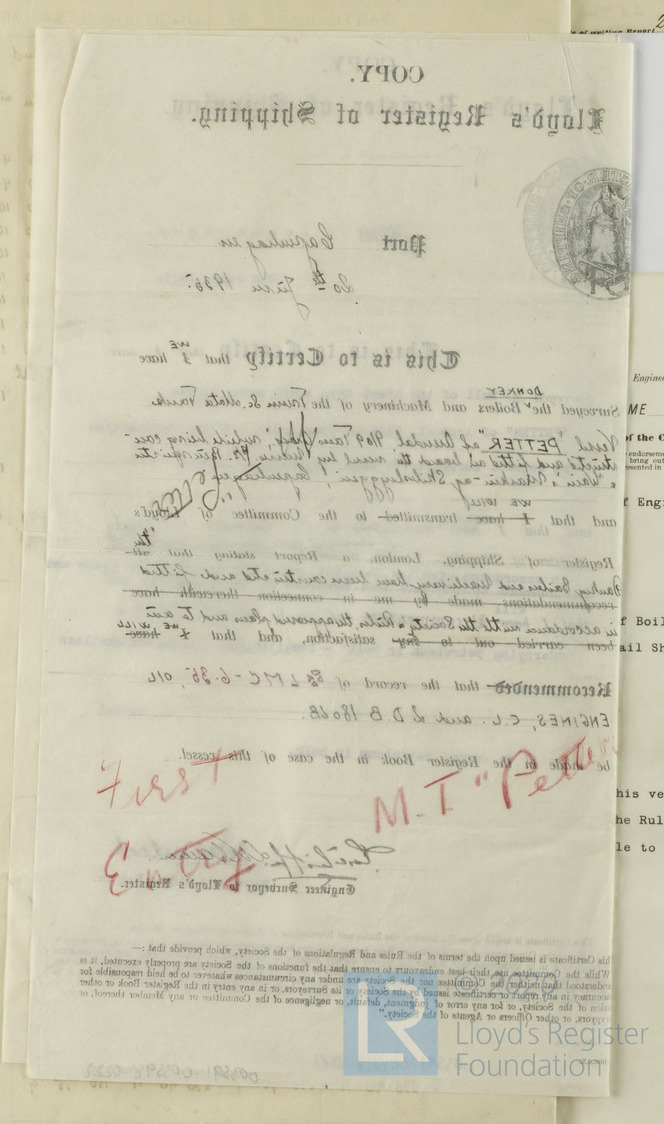 COPY.
Lloyd's Register of Shipping.
Port Copenhagen
20th June 1935
This is to Certify that I have
WE
DONKEY
Surveyed the Boilers and Machinery of the Twin Sc. Motor Tank
Vessel "PETTER" of Arendal
and fitted on board the vessel by
Copenhagen
we will
and that I have transmitted to the Committee of Lloyd's
Register of Shipping, London, a Report stating that all
the
Donkey Boilers and Machinery have been constructed and fitted
recommendations made by me in connection therewith have
in accordance with the Society's Rules, the approved plans and to our
been carried out to my satisfaction, and that I have
WE WILL
Recommended that the record of LMC-6.35, OIL
ENGINES, C.L. and 2 D B 180 LB.
be made in the Register Book in the case of this vessel.
First
Entry
M.T "Petter
Engineer Surveyor to Lloyd's Register.
This Certificate is issued upon the terms of the Rules and Regulations of the Society, which provide that :—
While the Committee use their best endeavours to ensure that the functions of the Society are properly executed, it is
understood that neither the Committee nor the Society are under any circumstances whatever to be held responsible for
inaccuracy in any report or certificate issued by the Society or its Surveyors, or in any entry in the Register Book or other
publication of the Society, or for any error of judgment, default, or negligence of the Committee or any Member thereof, or
Surveyors, or other Officers or Agents of the Society."
of writing Report
Engine
ME
of the C
f Engi
f Boil
ail Sh
his ve
he Rul
le to
© 2021
LR
Lloyd's Register
Foundation